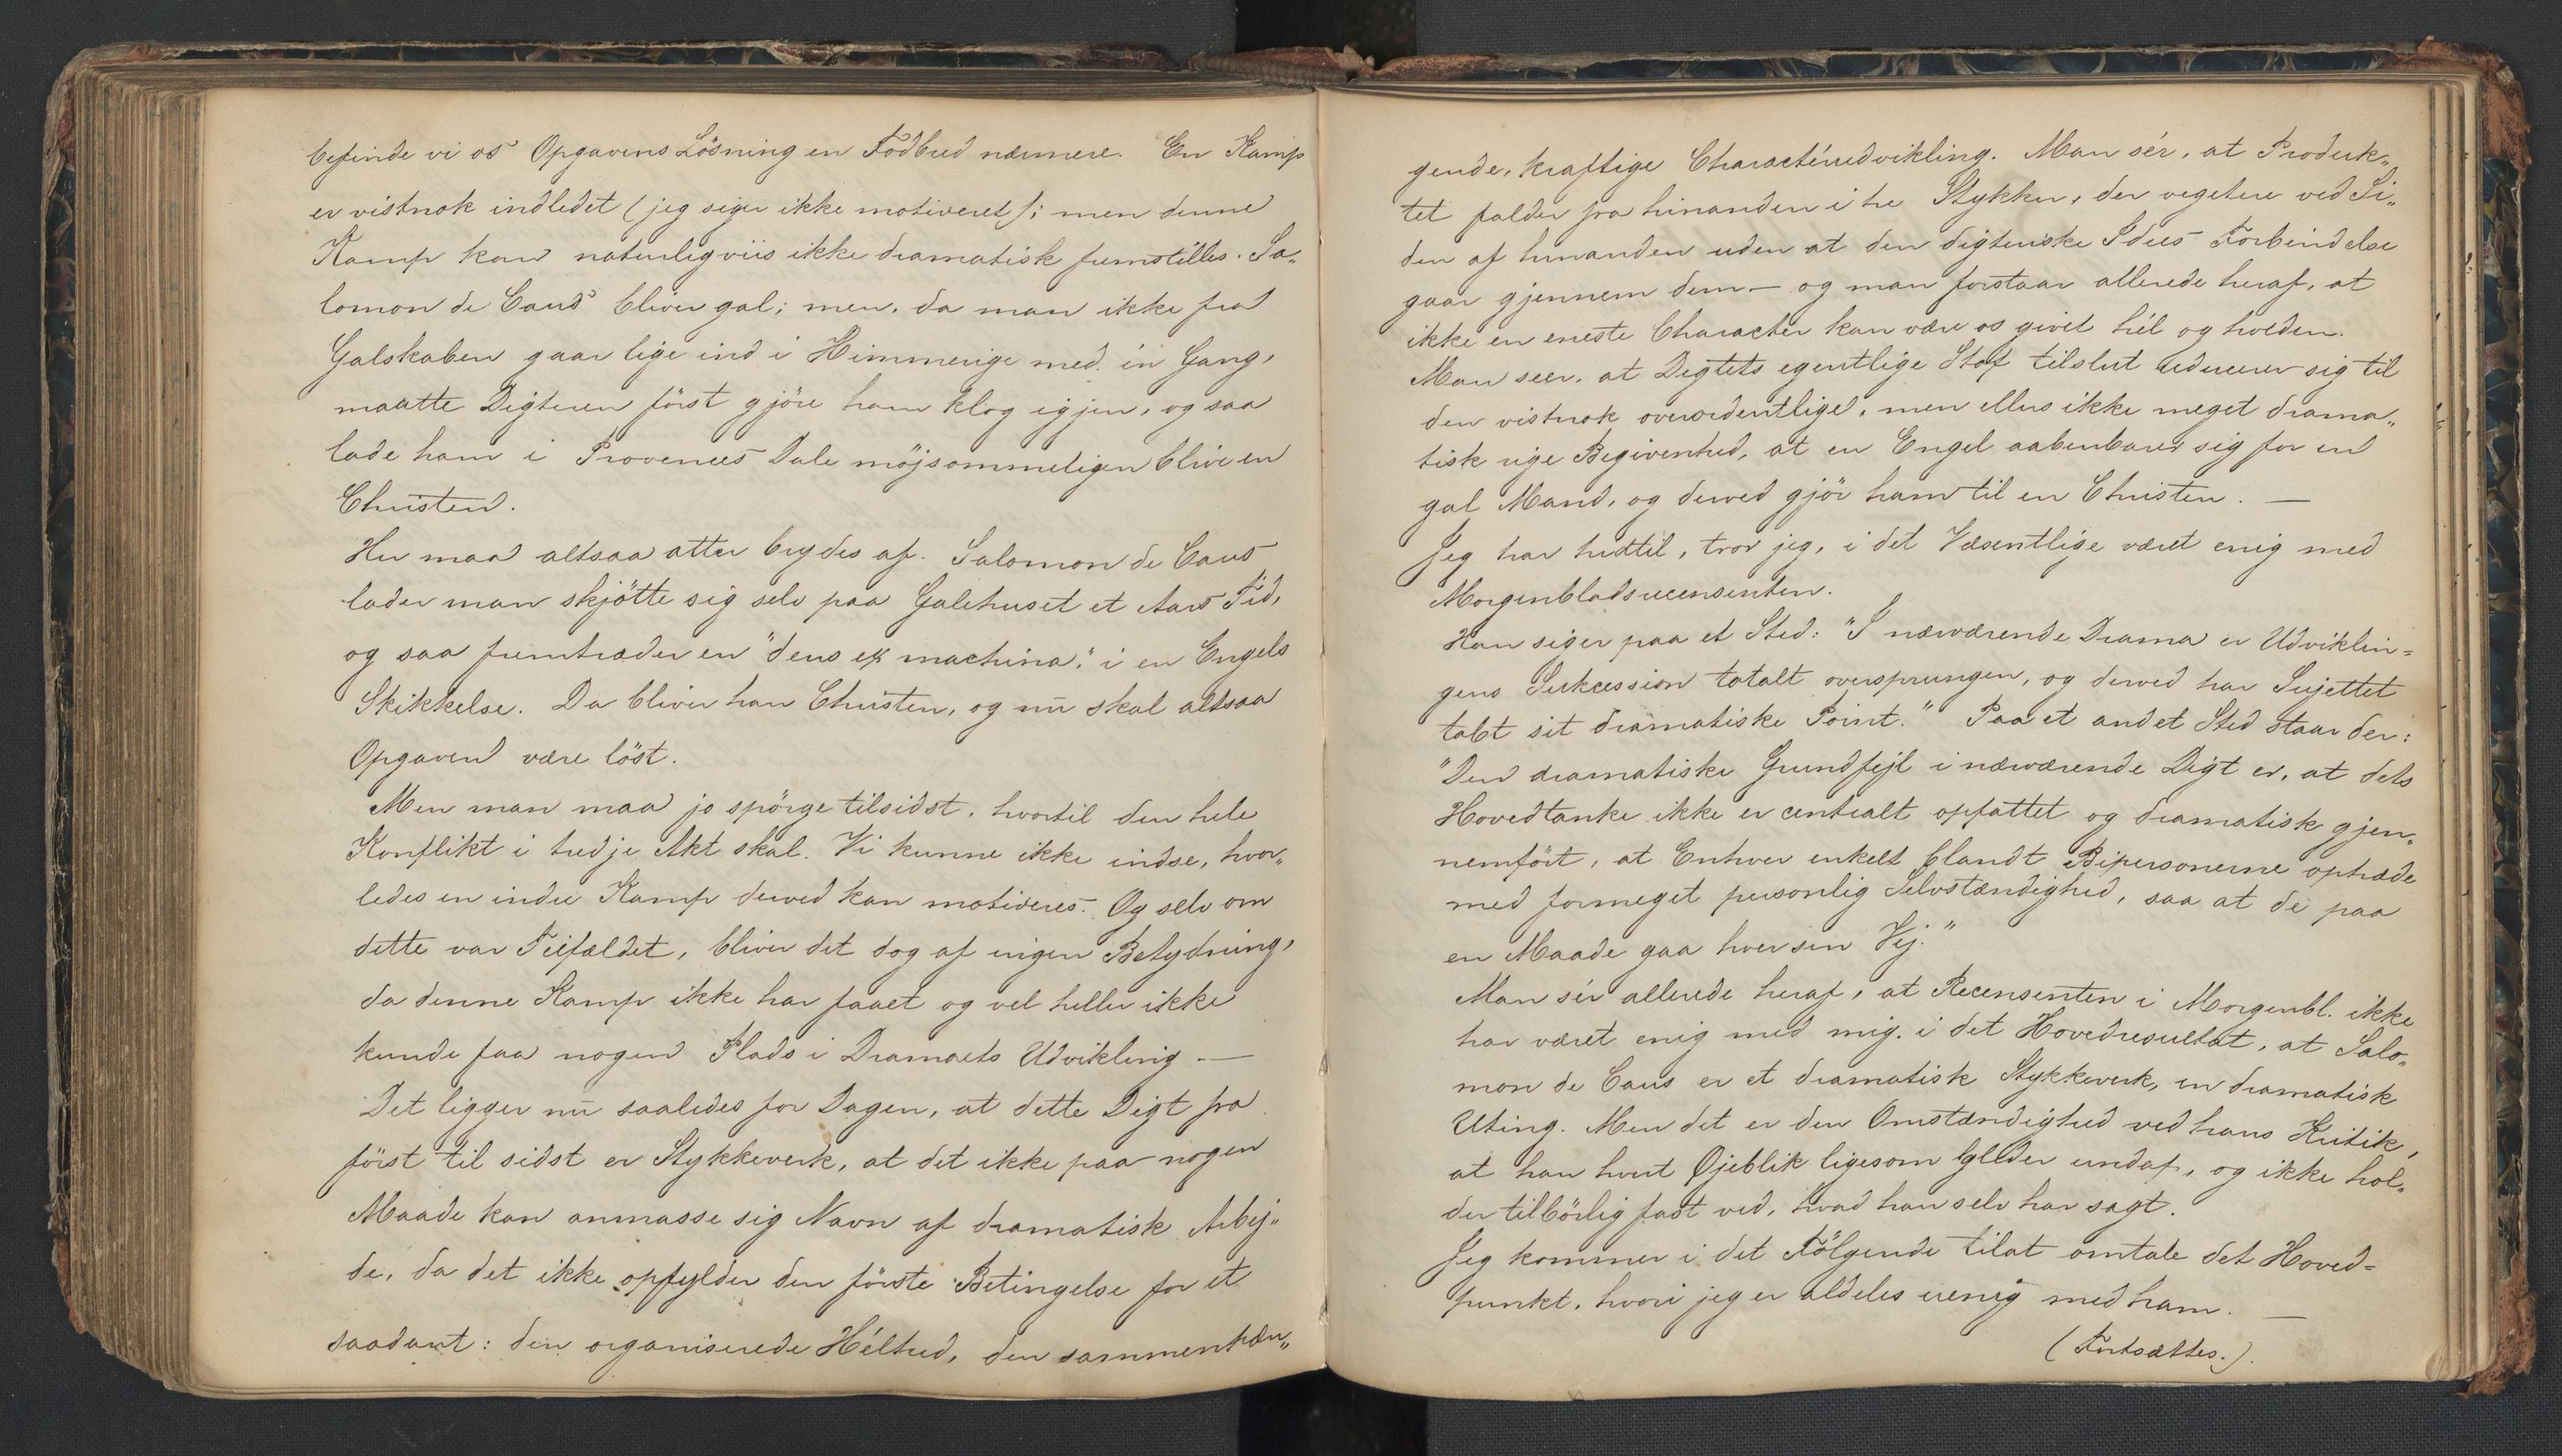 befinde vi os Opgavens Lösning en Fodbred nærmere. En Kamp
er vistnok indledet (jeg siger ikke motiveret); men denne
Kamp kan naturligviis ikke dramatisk fremstilles. Sa„
lomon de Caus bliver gal; men, da man ikke fra
Galskaben gaar lige ind i Himmerige med én Gang,
maatte Digteren först gjöre ham klog igjen, og saa
lade ham i Provences Dale möjsommeligen blive en
Christen.
Her maa altsaa atter brydes af. Salomon de Caus
lader man skjötte sig selv paa Galehuset et Aars Tid,
og saa fremtræder en "deus ex machina," i en Engels
Skikkelse. Da bliver han Christen, og nu skal altsaa
Opgaven være löst.
Men man maa jo spörge tilsidst, hvortil den hele
Konflikt i tredje Akt skal. Vi kunne ikke indse, hvor„
ledes en indre Kamp derved kan motiveres. Og selv om
dette var Tilfældet, bliver det dog af ingen Betydning,
da denne Kamp ikke har faaet og vel heller ikke
kunde faa nogen Plads i Dramaets Udvikling. —
Det ligger nu saaledes for Dagen, at dette Digt fra
först til sidst er Stykkeverk, at det ikke paa nogen
Maade kan anmasse sig Navn af dramatisk Arbej„
de, da det ikke opfylder den förste Betingelse for et
saadant: den organiserede Hélhed, den sammenhæn„
gende, kraftige Charactérudvikling. Man sér, at Produk„
tet falder fra hinanden i tre Stykker, der vegetere ved Si„
den af hinanden uden at den digteriske Idees Forbindelse
gaar gjennem dem — og man forstaar allerede heraf, at
ikke en eneste Character kan være os givet hél og holden.
Man seer, at Digtets egentlige Stof tilslut reducerer sig til
den vistnok overordentlige, men ellers ikke meget drama„
tisk rige Begivenhed, at en Engel aabenbarer sig for en
gal Mand, og derved gjör ham til en Christen. —
Jeg har hidtil, tror jeg, i det Væsentlige været enig med
Morgenbladsrecensenten.
Han siger paa et Sted: "I nærværende Drama er Udviklin=
gens Sukcession totalt oversprungen, og derved har Sujettet
tabt sit dramatiske Point." Paa et andet Sted staar der:
"Den dramatiske Grundfejl i nærværende Digt er, at dets
Hovedtanke ikke er centralt opfattet og dramatisk gjen„
nemfört, at Enhver enkelt blandt Bipersonerne optræde
med formeget personlig Selvstændighed, saa at de paa
en Maade gaa hver sin Vej."
Man sér allerede heraf, at Recensenten i Morgenbl. ikke
har været enig med mig i det Hovedresultat, at Salo„
mon de Caus er et dramatisk Stykkeverk, en dramatisk
Uting. Men det er den Omstændighed ved hans Kritik,
at han hvert Øjeblik ligesom glider undaf, og ikke hol„
der tilbörlig fast ved, hvad han selv har sagt.
Jeg kommer i det Fölgende til at omtale det Hoved=
punkt, hvori jeg er aldeles uenig med ham. —
(Fortsættes.).